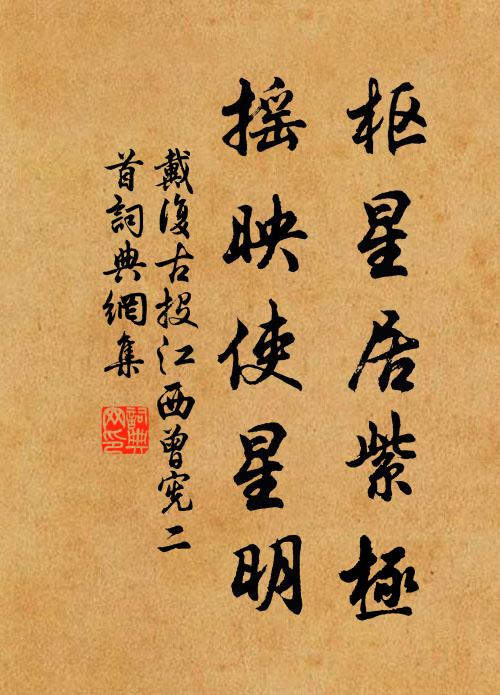 枢星居紫極
摇映使星明
戴復古投江西曾宪二
首詞典網集
詞典
网印